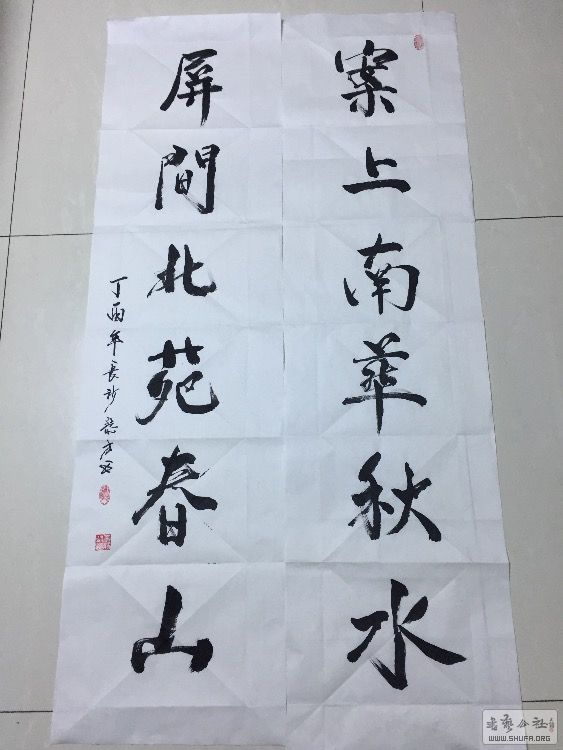 案上南華秋水
屏間北苑春山
丁酉年長沙
书艺公社
WWW.SHUFA.ORG